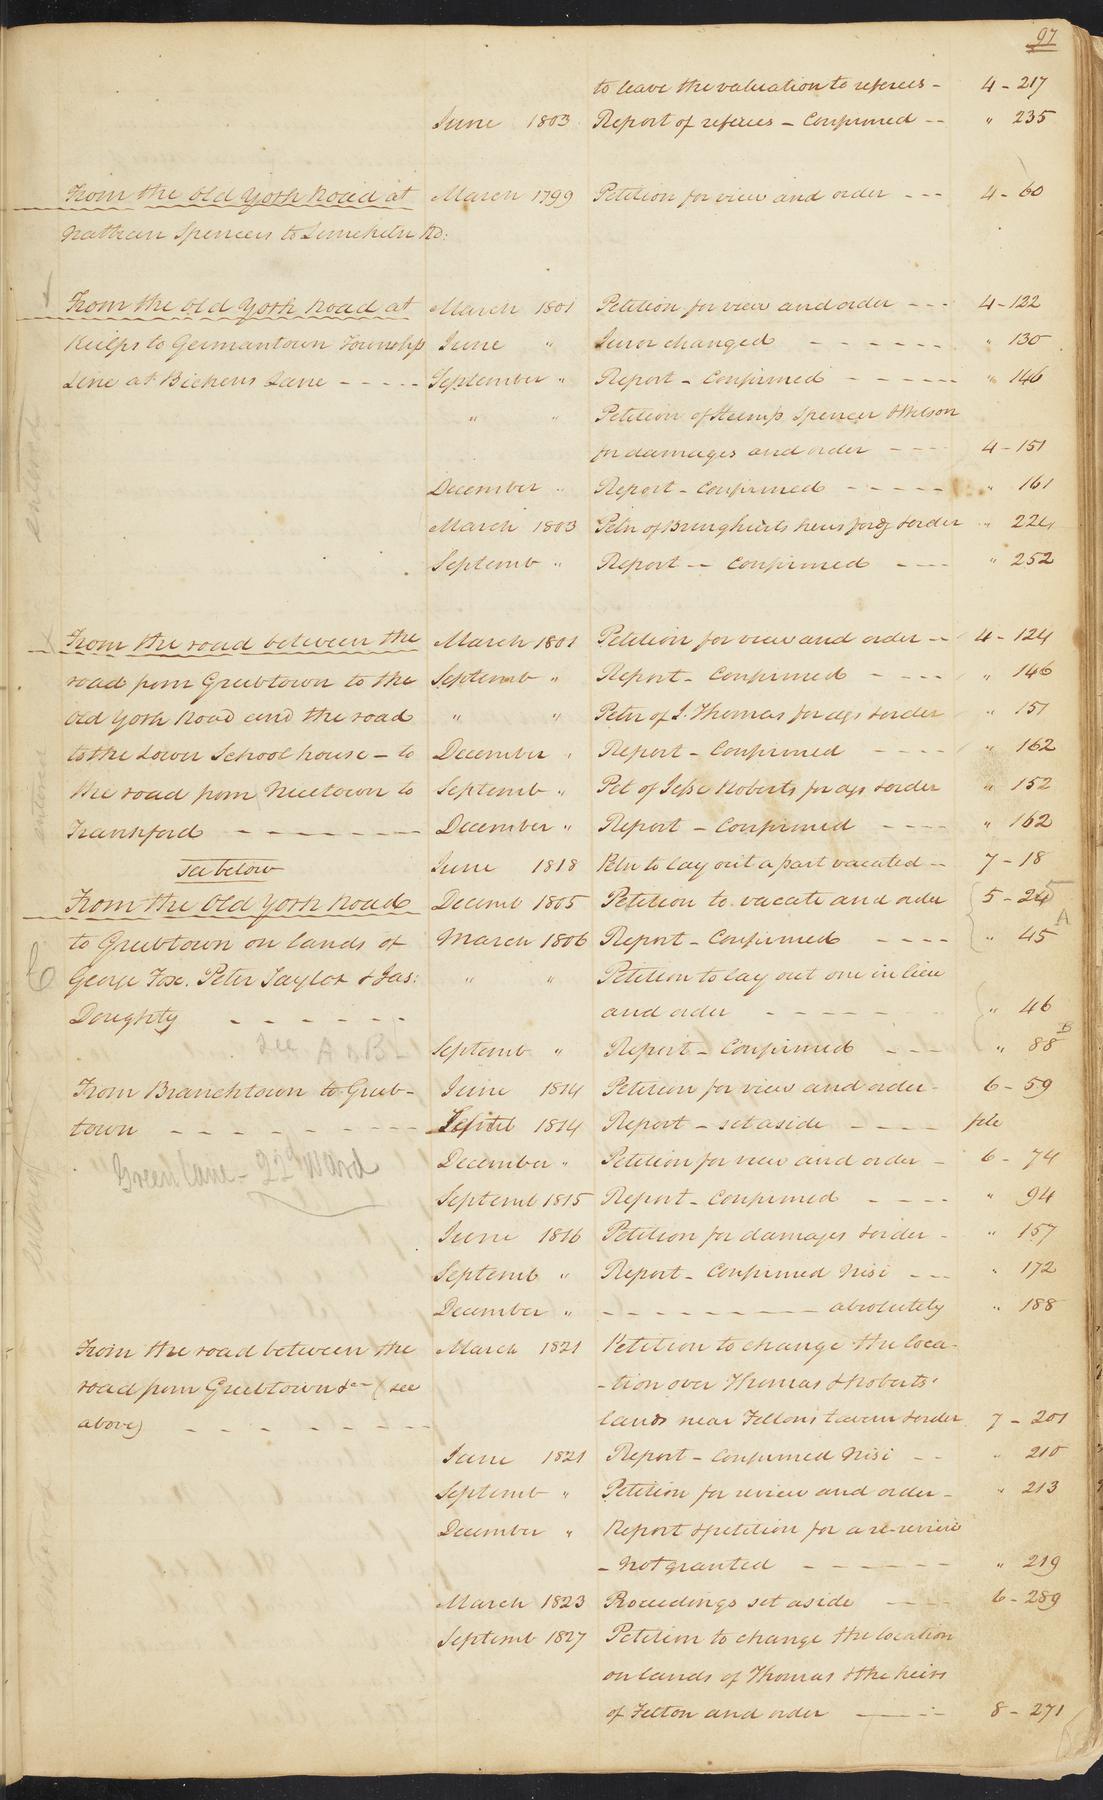 97
to leave the valuation to referees - 4 - 217
June 1803 Report of referees - Confirmed -- " 235
From the Old York Road at March 1799 Petition for view and order --- 4 - 60
Nathan Spencers to Limekiln Rd:
From the Old York Road at March 1801 Petition for view and order --- 4 - 122
to Germantown Township June " Juror changed - - - - - - " 130
Line at Bickens Lane - - - - - September " Report - Confirmed - - - - - - " 146
" " Petition of Spencer & Wilson
for damages and order - - - - 4 - 151
December " Report - Confirmed - - - - - " 161
March 1803 Petn of heirs for dgs & order " 224
Septemb " Report -- Confirmed - - - " 252
From the road between the March 1801 Petition for view and order -- 4 - 124
road from Greubtown to the Septemb " Report - Confirmed - - - - " 146
Old York Road and the road " " Petn of J. Thomas for dgs & order " 151
to the Lower School house - to December " Report - Confirmed - - - - " 162
the road from Nicetown to Septemb " Pet of Jesse Roberts for dgs & order " 152
Frankford - - - - - - - - December " Report - Confirmed - - - - " 162
see below June 1818 Petn to lay out a part vacated -- 7 - 18
From the Old York Road Decemb 1805 Petition to vacate and order 5 - 24 5
to Greubtown on lands of March 1806 Report - Confirmed - - - - " 45 A
George Fox. Peter Taylor & Jas: " " Petition to lay out one in lieu
Doughty - - - - - - and order - - - - - - " 46
see A & B Septemb " Report - Confirmed - - - " 88 B
From Branchtown to Greub- June 1814 Petition for view and order - 6 - 59
town - - - - - - - - - - Septel 1814 Report - set aside - - - - file
December " Petition for view and order - 6 - 74
Green Lane - 22d Ward
Septemb 1815 Report - Confirmed - - - - " 94
June 1816 Petition for damages & order - " 157
Septemb " Report - Confirmed Nisi - - - " 172
December " - - - - - - - - - - absolutely " 188
From the road between the March 1821 Petition to change the loca-
road from Greubtown &c - (see -tion over Thomas & Roberts'
above) - - - - - - - lands near Feltons tavern & order 7 - 201
June 1821 Report - Confirmed Nisi - - " 210
Septemb " Petition for review and order - " 213
December " Report & petition for a re-review
- Not granted - - - - - - " 219
March 1823 Proceedings set aside - - - - 6 - 289
Septemb 1827 Petition to change the location
on lands of Thomas & the heirs
of Felton and order - - - - 8 - 271